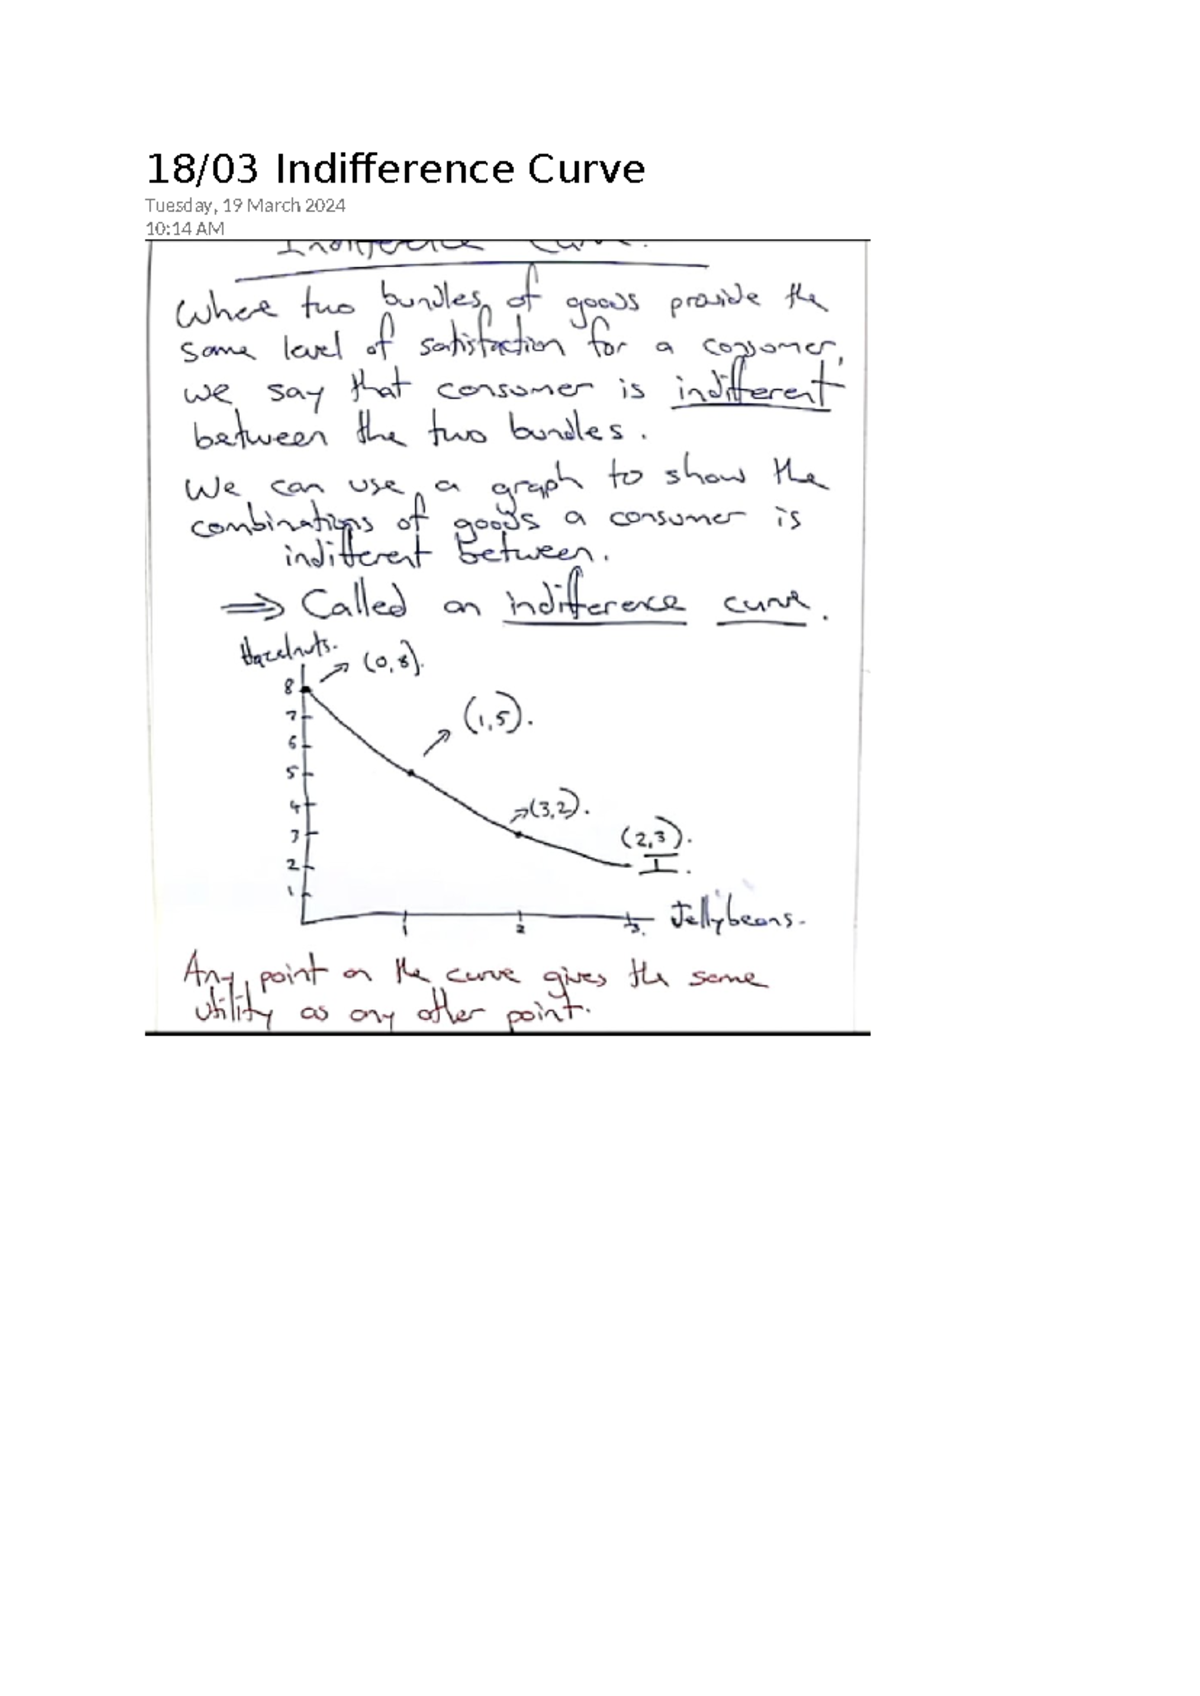 18/03 Indifference Curve
Tuesday, 19 March 2024
10:14 AM
Indifference Curve.
Where two bundles of goods provide the
same level of satisfaction for a consumer,
we say that consumer is indifferent
between the two bundles.
We can use a graph to show the
combinations of goods a consumer is
indifferent between.
⇒ Called an indifference curve.
Hazelnuts.
(0,8).
8
7
(1,5).
6
5
4
(3,2).
3
(2,3).
2
I.
1
Jellybeans.
1 2 3.
Any point on the curve gives the same
utility as any other point.